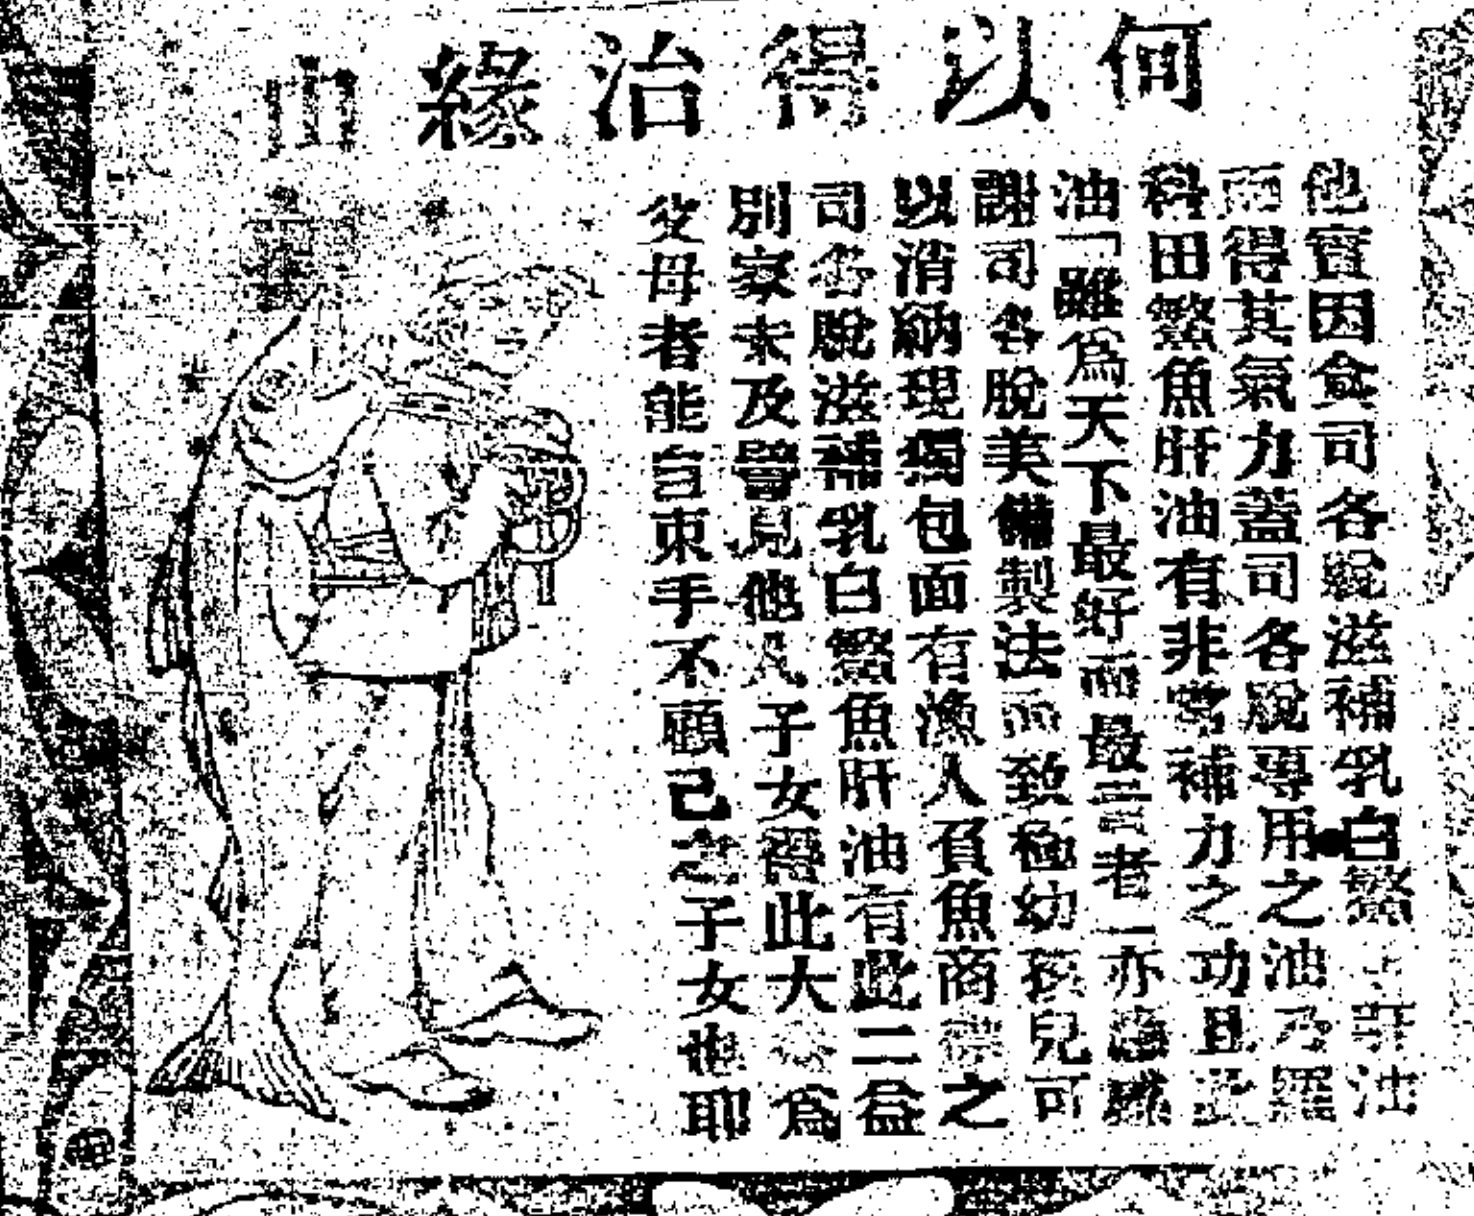 何以得治緣由
他實因食司各脫滋補乳白鰵魚肝油
而得其氣力蓋司各脫專用之油乃羅
科田鰵魚肝油有非常補力之功且此
油「雖為天下最好而最 者」亦 感
謝司各脫美備製法而致極幼孩兒可
以消納現獨包面有漁人負魚商標之
司各脫滋補乳白鰵魚肝油有此二益
別家未及 見他凡子女 此大 為
父母者能言束手不顧己之子女也耶